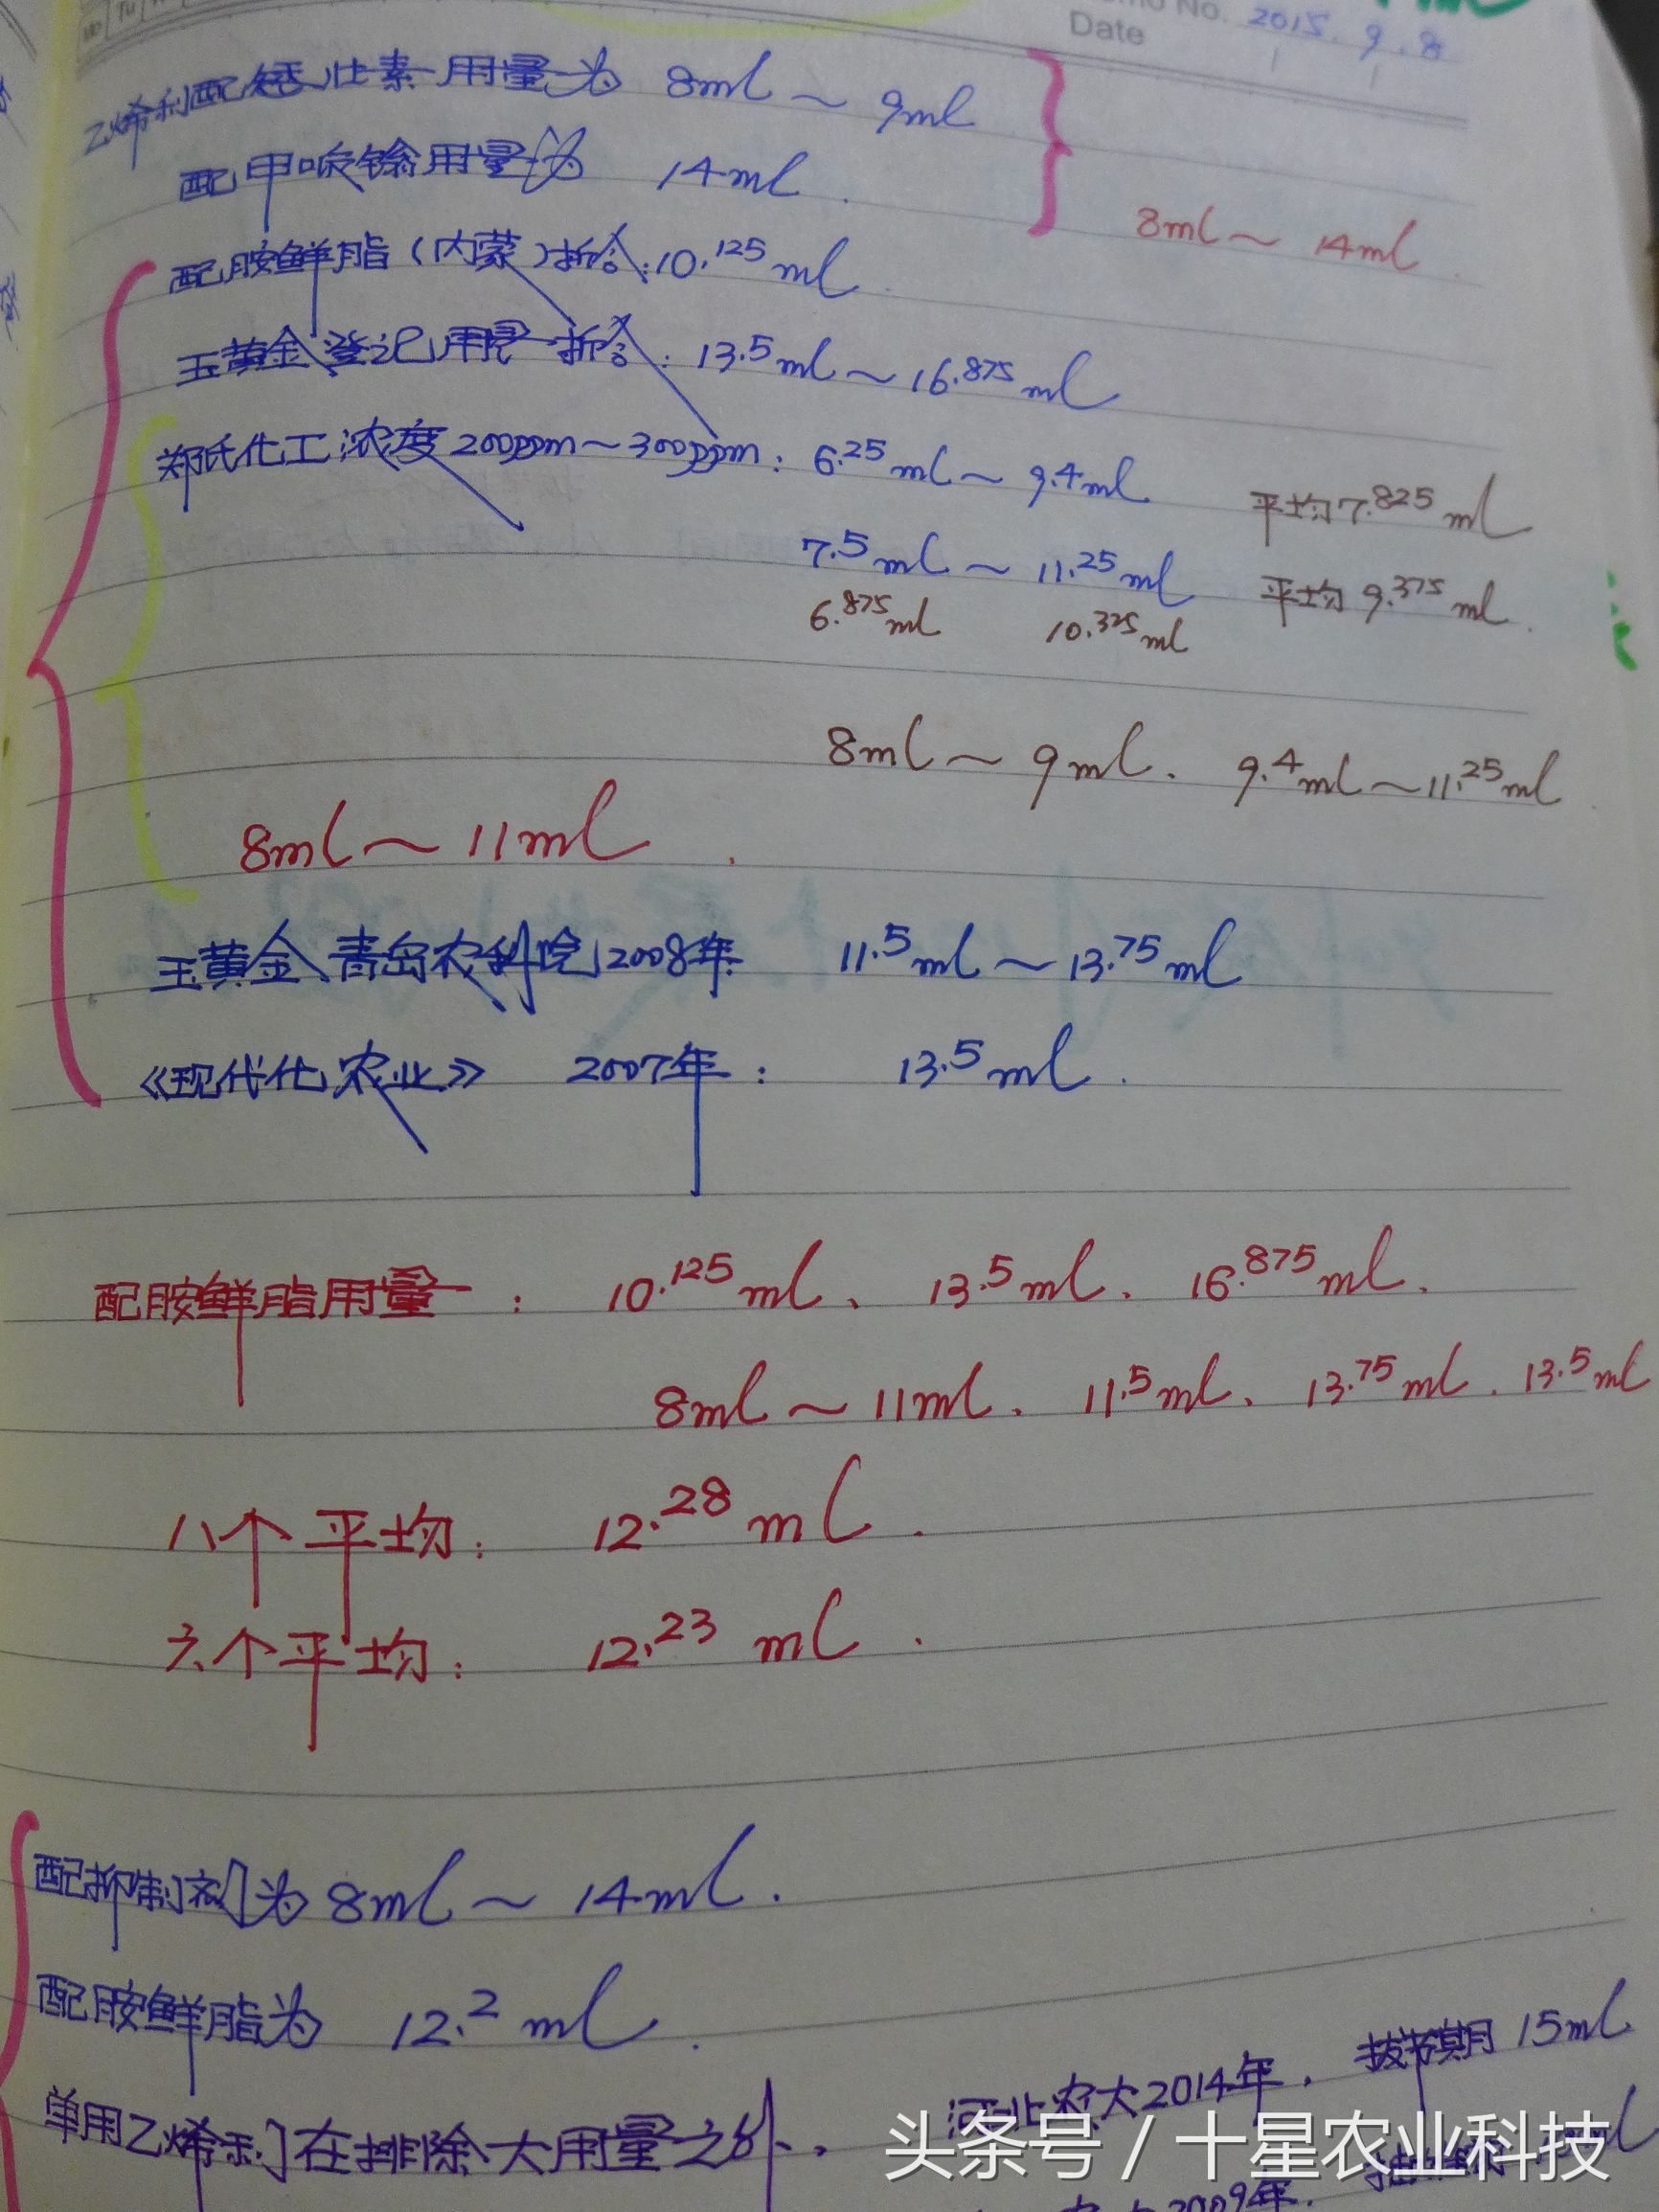 No. 2015.9.8
Date
乙烯利配矮壮素用量为 8ml～9ml
配甲哌鎓用量为 14ml.
8ml～14ml.
配胺鲜脂(内蒙)折合:10.125ml.
玉黄金登记用量折合:13.5ml～16.875ml
郑氏化工:浓度200ppm～300ppm:6.25ml～9.4ml 平均7.825ml
7.5ml～11.25ml 平均9.375ml.
6.875ml 10.325ml
8ml～9ml. 9.4ml～11.25ml.
8ml～11ml.
玉黄金、青岛农科院2008年 11.5ml～13.75ml
《现代化农业》 2007年: 13.5ml.
配胺鲜脂用量: 10.125ml、13.5ml.16.875ml.
8ml～11ml. 11.5ml、13.75ml.13.5ml
八个平均: 12.28ml.
六个平均: 12.23ml.
配抑制剂为8ml～14ml.
配胺鲜脂为 12.2ml.
河北农大2014年. 拔节期15ml
单用乙烯利在排除大用量之外,
2009年.
头条号/十星农业科技